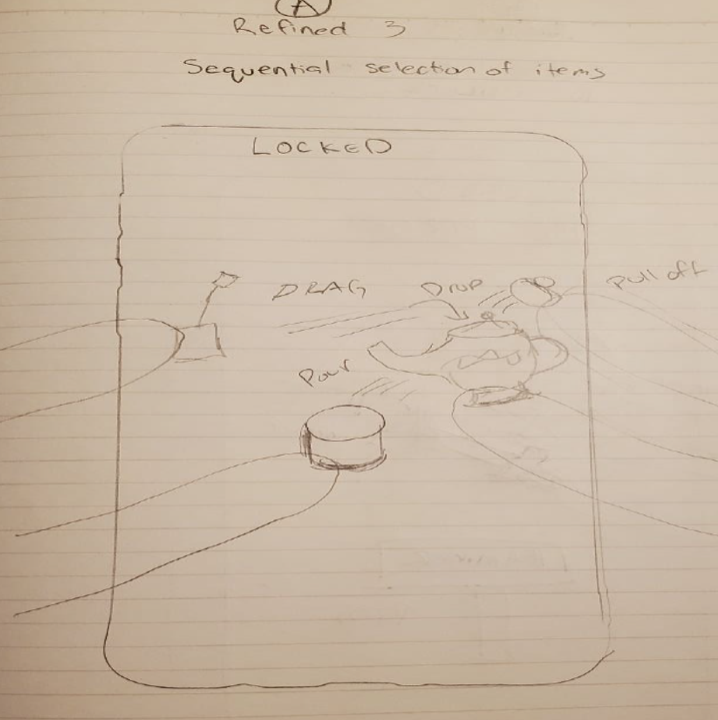 A
Refined 3
Sequential selection of items
LOCKED
DRAG Drop Pull off
Pour